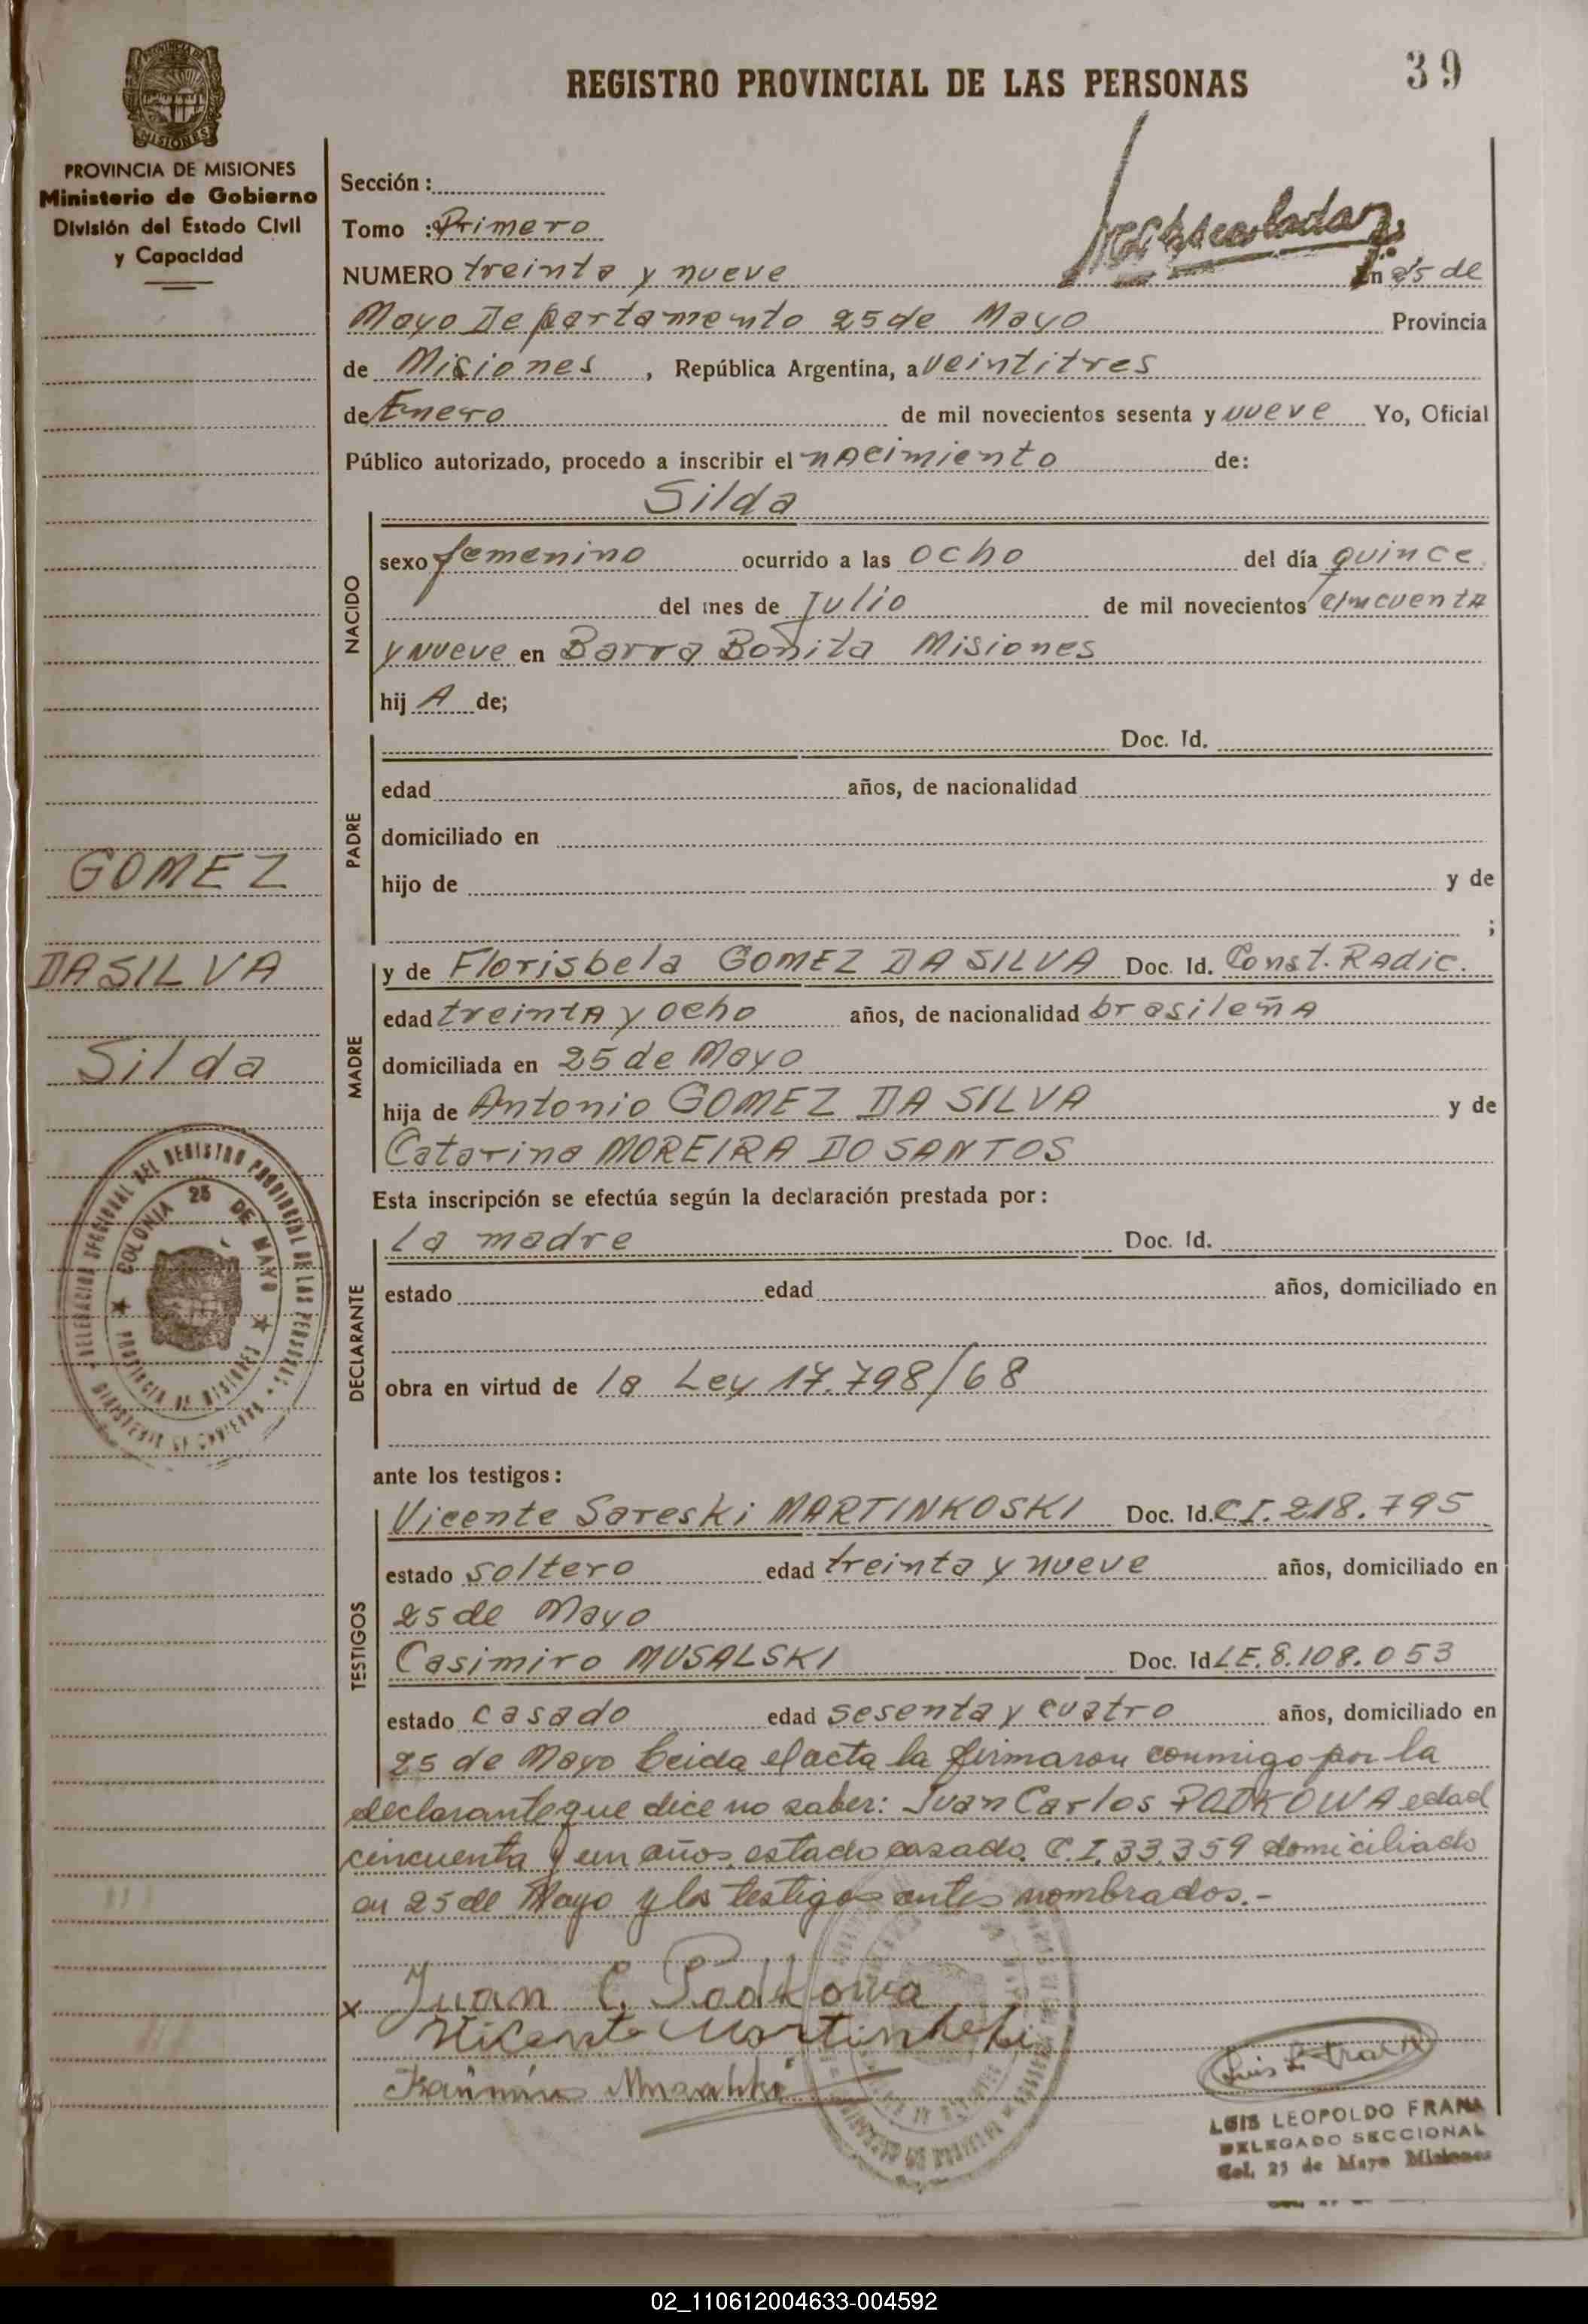 39
REGISTRO PROVINCIAL DE LAS PERSONAS
PROVINCIA DE MISIONES
Ministerio de Gobierno
División del Estado Civil
y Capacidad
Sección :
Tomo : Primero
NUMERO treinta y nueve En 25 de
Mayo Departamento 25 de Mayo Provincia
de Misiones , República Argentina, a veintitres
de Enero de mil novecientos sesenta y nueve Yo, Oficial
Público autorizado, procedo a inscribir el nacimiento de:
NACIDO
Silda
sexo femenino ocurrido a las ocho del día quince
del mes de Julio de mil novecientos cincuenta
y nueve en Barra Bonita Misiones
hij A de;
PADRE
Doc. Id.
edad años, de nacionalidad
domiciliado en
hijo de y de
;
GOMEZ
DA SILVA
Silda
MADRE
y de Florisbela GOMEZ DA SILVA Doc. Id. Const. Radic.
edad treinta y ocho años, de nacionalidad brasileña
domiciliada en 25 de Mayo
hija de Antonio GOMEZ DA SILVA y de
Catarina MOREIRA DO SANTOS
DELEGACION SECCIONAL DEL REGISTRO PROVINCIAL DE LAS PERSONAS
MINISTERIO DE GOBIERNO
COLONIA 25 DE MAYO
PROVINCIA DE MISIONES
Esta inscripción se efectúa según la declaración prestada por:
DECLARANTE
la madre Doc. Id.
estado edad años, domiciliado en
obra en virtud de la Ley 17.798/68
ante los testigos:
TESTIGOS
Vicente Sareski MARTINKOSKI Doc. Id. C.I. 218.795
estado soltero edad treinta y nueve años, domiciliado en
25 de Mayo
Casimiro MUSALSKI Doc. Id LE. 8.108.053
estado casado edad sesenta y cuatro años, domiciliado en
25 de Mayo Leida el acta la firmaron conmigo por la
declarante que dice no saber: Juan Carlos PODKOWA edad
cincuenta y un años, estado casado. C.I. 33.359 domiciliado
en 25 de Mayo y los testigos antes nombrados.-
x Juan C. Podkowa
Vicente Martinkoski
LUIS LEOPOLDO FRANK
DELEGADO SECCIONAL
Col. 25 de Mayo Misiones
02_110612004633-004592